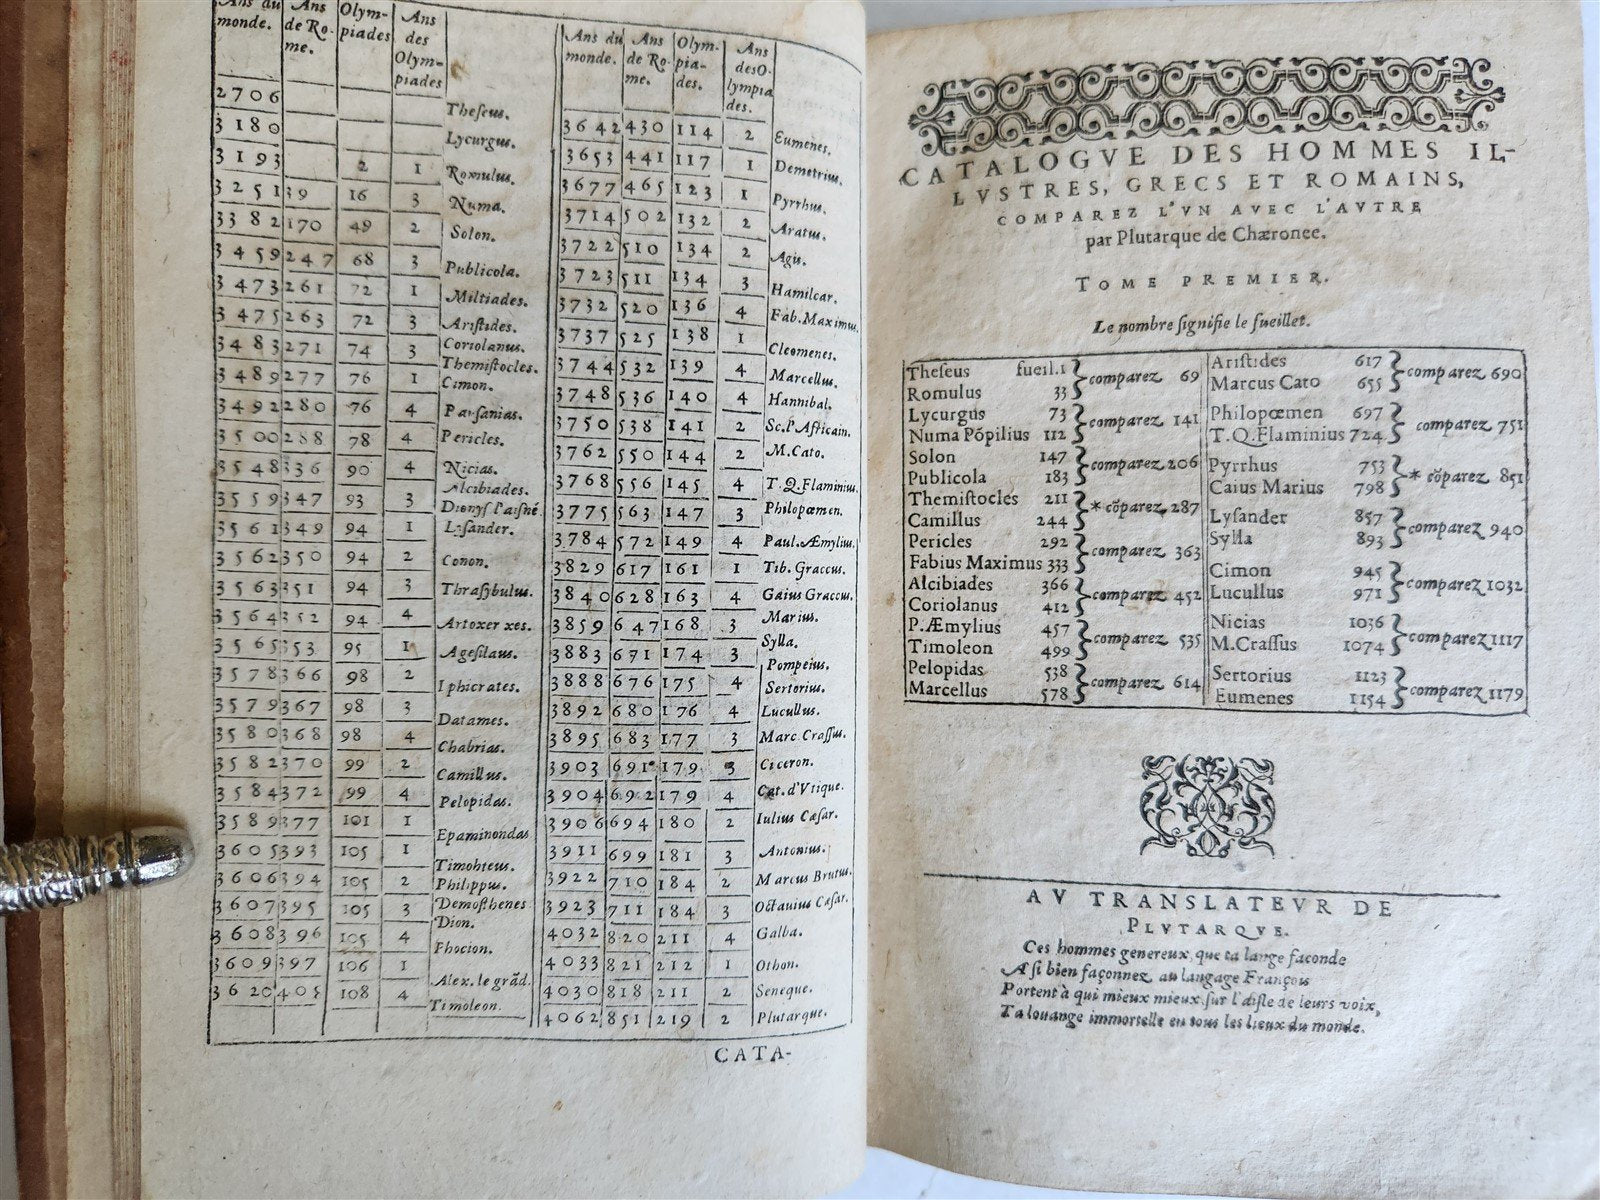 Ans du monde. | Ans de Rome. | Olympiades | Ans des Olympiades
2706 | | | | Theſeus.
3180 | | | | Lycurgus.
3193 | | 2 | 1 | Romulus.
3251 | 39 | 16 | 3 | Numa.
3382 | 170 | 49 | 2 | Solon.
3459 | 247 | 68 | 3 | Publicola.
3473 | 261 | 72 | 1 | Miltiades.
3475 | 263 | 72 | 3 | Ariſtides.
3483 | 271 | 74 | 3 | Coriolanus. Themiſtocles.
3489 | 277 | 76 | 1 | Cimon.
3492 | 280 | 76 | 4 | Pauſanias.
3500 | 288 | 78 | 4 | Pericles.
3548 | 336 | 90 | 4 | Nicias. Alcibiades.
3559 | 347 | 93 | 3 | Dionyſ l'aiſné
3561 | 349 | 94 | 1 | Lyſander.
3562 | 350 | 94 | 2 | Conon.
3563 | 351 | 94 | 3 | Thraſybulus.
3564 | 352 | 94 | 4 | Artoxerxes.
3565 | 353 | 95 | 1 | Ageſilaus.
3578 | 366 | 98 | 2 | Iphicrates.
3579 | 367 | 98 | 3 | Datames.
3580 | 368 | 98 | 4 | Chabrias.
3582 | 370 | 99 | 2 | Camillus.
3584 | 372 | 99 | 4 | Pelopidas.
3589 | 377 | 101 | 1 | Epaminondas
3605 | 393 | 105 | 1 | Timohteus.
3606 | 394 | 105 | 2 | Philippus.
3607 | 395 | 105 | 3 | Demoſthenes Dion.
3608 | 396 | 105 | 4 | Phocion.
3609 | 397 | 106 | 1 | Alex. le grãd.
3620 | 405 | 108 | 4 | Timoleon.
Ans du monde. | Ans de Rome. | Olympiades. | Ans des Olympiades.
3642 | 430 | 114 | 2 | Eumenes.
3653 | 441 | 117 | 1 | Demetrius.
3677 | 465 | 123 | 1 | Pyrrhus.
3714 | 502 | 132 | 2 | Aratus.
3722 | 510 | 134 | 2 | Agis.
3723 | 511 | 134 | 3 | Hamilcar.
3732 | 520 | 136 | 4 | Fab. Maximus.
3737 | 525 | 138 | 1 | Cleomenes.
3744 | 532 | 139 | 4 | Marcellus.
3748 | 536 | 140 | 4 | Hannibal.
3750 | 538 | 141 | 2 | Sc. l'Africain.
3762 | 550 | 144 | 2 | M. Cato.
3768 | 556 | 145 | 4 | T. Q. Flaminius.
3775 | 563 | 147 | 3 | Philopœmen.
3784 | 572 | 149 | 4 | Paul. Æmylius.
3829 | 617 | 161 | 1 | Tib. Graccus.
3840 | 628 | 163 | 4 | Gaius Graccus.
3859 | 647 | 168 | 3 | Marius.
3883 | 671 | 174 | 3 | Sylla. Pompeius.
3888 | 676 | 175 | 4 | Sertorius.
3892 | 680 | 176 | 4 | Lucullus.
3895 | 683 | 177 | 3 | Marc. Craſſus.
3903 | 691 | 179 | 3 | Ciceron.
3904 | 692 | 179 | 4 | Cat. d'Vtique.
3906 | 694 | 180 | 2 | Iulius Cæſar.
3911 | 699 | 181 | 3 | Antonius.
3922 | 710 | 184 | 2 | Marcus Brutus.
3923 | 711 | 184 | 3 | Octauius Cæſar.
4032 | 820 | 211 | 4 | Galba.
4033 | 821 | 212 | 1 | Othon.
4030 | 818 | 211 | 2 | Seneque.
4062 | 851 | 219 | 2 | Plutarque.
CATA-
CATALOGVE DES HOMMES IL-
LVSTRES, GRECS ET ROMAINS,
COMPAREZ L'VN AVEC L'AVTRE
par Plutarque de Chæronee.
TOME PREMIER.
Le nombre ſignifie le fueillet.
Theſeus fueil. 1
Romulus 33 comparez 69
Lycurgus 73
Numa Põpilius 112 comparez 141
Solon 147
Publicola 183 comparez 206
Themiſtocles 211
Camillus 244 * cõparez 287
Pericles 292
Fabius Maximus 333 comparez 363
Alcibiades 366
Coriolanus 412 comparez 452
P. Æmylius 457
Timoleon 499 comparez 535
Pelopidas 538
Marcellus 578 comparez 614
Ariſtides 617
Marcus Cato 655 comparez 690
Philopœmen 697
T. Q. Flaminius 724 comparez 751
Pyrrhus 753
Caius Marius 798 * cõparez 851
Lyſander 857
Sylla 893 comparez 940
Cimon 945
Lucullus 971 comparez 1032
Nicias 1036
M. Craſſus 1074 comparez 1117
Sertorius 1123
Eumenes 1154 comparez 1179
AV TRANSLATEVR DE
PLVTARQVE.
Ces hommes genereux, que ta langue faconde
A ſi bien façonnez au langage François
Portent à qui mieux mieux ſur l'aiſle de leurs voix,
Ta louange immortelle en tous les lieux du monde.